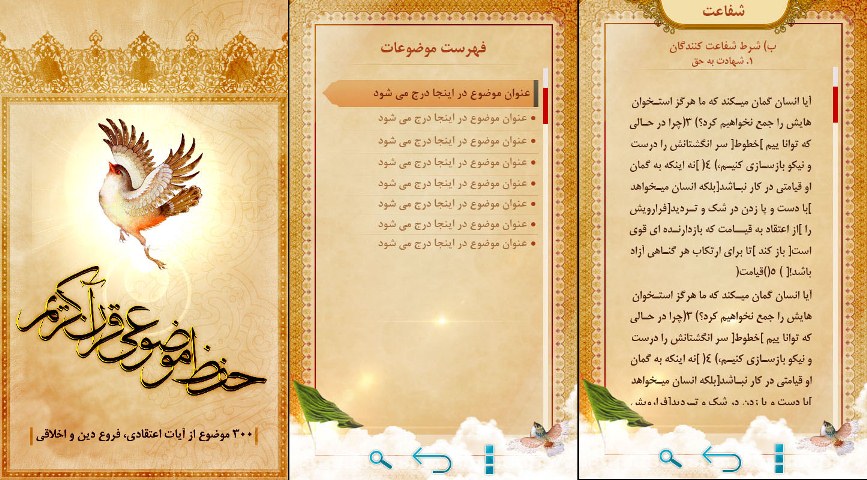 حفظ موضوعی قرآن کریم
۳۰۰ موضوع از آیات اعتقادی، فروع دین و اخلاقی
فهرست موضوعات
عنوان موضوع در اینجا درج می شود
عنوان موضوع در اینجا درج می شود
عنوان موضوع در اینجا درج می شود
عنوان موضوع در اینجا درج می شود
عنوان موضوع در اینجا درج می شود
عنوان موضوع در اینجا درج می شود
عنوان موضوع در اینجا درج می شود
عنوان موضوع در اینجا درج می شود
شفاعت
ب) شرط شفاعت کنندگان
۱. شهادت به حق
آیا انسان گمان میـکند که ما هرگز استـخوان
هایش را جمع نخواهیم کرد؟) ۳(چرا در حـالی
که توانا ییم ]خطوط[ سر انگشتانش را درست
و نیکو بازسـازی کنیـم،) ٤( ]نه اینکه به گمان
او قیامتی در کار نبـاشد[بلکه انسان میـخواهد
]با دست و پا زدن در شک و تـردید[فرارویش
را ]از اعتقاد به قیـــامت که بازدارنـده ای قوی
است[ باز کند ]تا برای ارتکاب هر گنـاهی آزاد
باشد![ ) ٥()قیامت(
آیا انسان گمان میـکند که ما هرگز استـخوان
هایش را جمع نخواهیم کرد؟) ۳(چرا در حـالی
که توانا ییم ]خطوط[ سر انگشتانش را درست
و نیکو بازسـازی کنیـم،) ٤( ]نه اینکه به گمان
او قیامتی در کار نبـاشد[بلکه انسان میـخواهد
]با دست و پا زدن در شک و تـردید[فرارویش